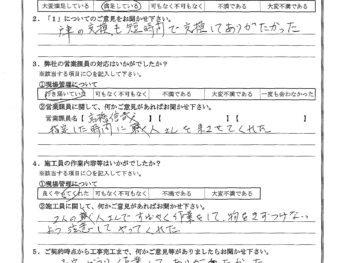 大変満足している 満足している 可もなく不可もなく 不満である 大変不満である
2．「1」についてのご意見をお聞かせ下さい。
も短時間で交換してありがたかった
3．弊社の営業課員の対応はいかがでしたか？
※該当する項目に○を記入して下さい。
①現場管理について
行き届いている 可もなく不可もなく 不満である 大変不満である 一度も会わなかった
②営業課員に関して、何かご意見があればお聞かせ下さい。
営業課員名【 】【 】【 】
指定した時間に職人さんを来させてくれた。
4．施工員の作業内容等はいかがでしたか？
※該当する項目に○をご記入して下さい。
①現場管理について
良くやってくれた 可もなく不可もなく 不満である 大変不満である
②施工員に関して、何かご意見があればお聞かせ下さい。
2人の職人さんですばやく作業をして、物をきずつけない
よう注意してやってくれた
5．ご契約時点から工事完工まで、何かご意見等がありましたらお聞かせ下さい。